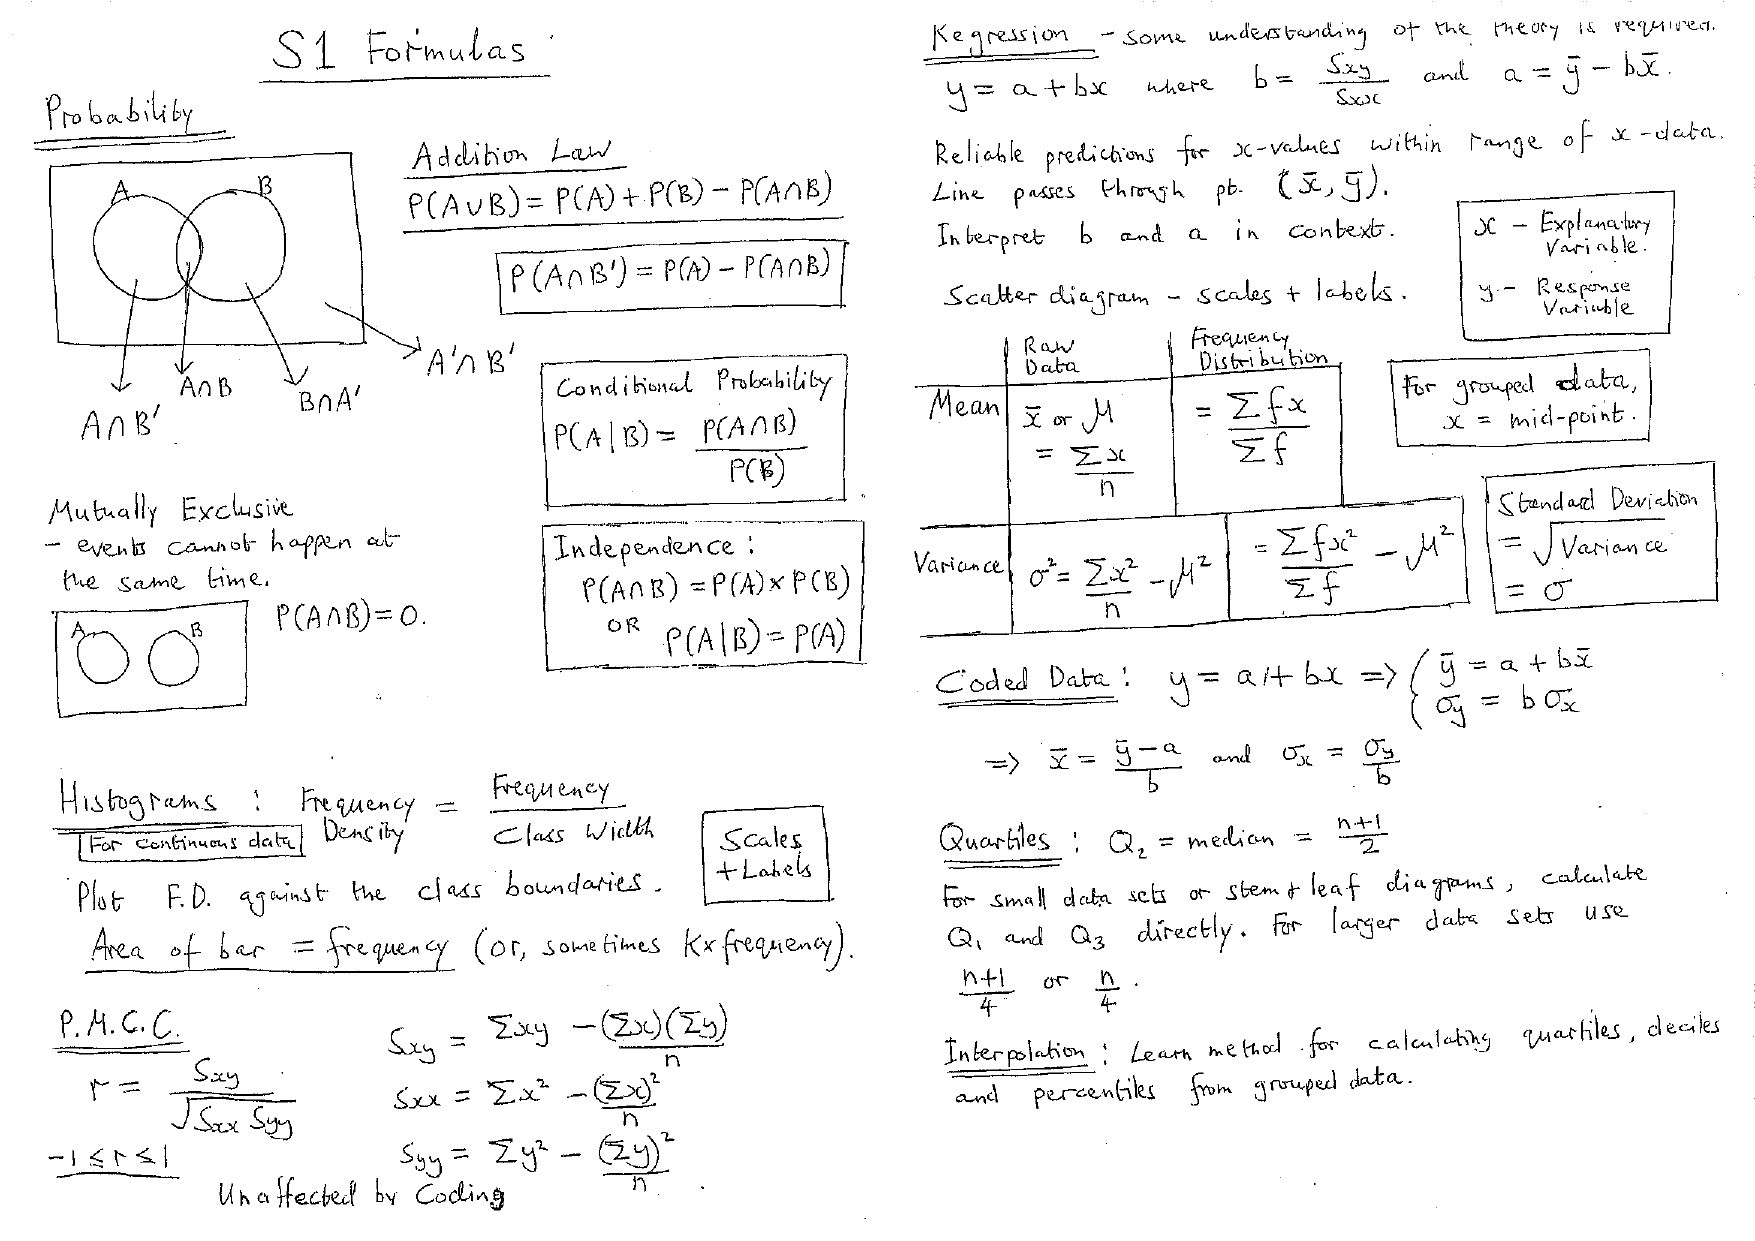 S1 Formulas
Probability
A B
A∩B'
A∩B
B∩A'
A'∩B'
Addition Law
P(A∪B) = P(A) + P(B) - P(A∩B)
P(A∩B') = P(A) - P(A∩B)
Conditional Probability
P(A|B) = P(A∩B) / P(B)
Mutually Exclusive
- events cannot happen at
the same time.
A B
P(A∩B) = 0.
Independence :
P(A∩B) = P(A) × P(B)
OR P(A|B) = P(A)
Histograms : Frequency Density = Frequency / Class Width
For continuous data
Scales
+ Labels
Plot F.D. against the class boundaries.
Area of bar = frequency (or, sometimes K×frequency).
P.M.C.C.
r = Sxy / √Sxx Syy
-1 ≤ r ≤ 1
Sxy = Σxy - (Σx)(Σy) / n
Sxx = Σx² - (Σx)² / n
Syy = Σy² - (Σy)² / n
Unaffected by Coding
Regression - some understanding of the theory is required.
y = a + bx where b = Sxy / Sxx and a = ȳ - bx̄.
Reliable predictions for x-values within range of x-data.
Line passes through pt. (x̄, ȳ).
Interpret b and a in context.
x - Explanatory
Variable.
y - Response
Variable
Scatter diagram - scales + labels.
Raw Data Frequency Distribution
Mean x̄ or μ = Σx / n = Σfx / Σf
Variance σ² = Σx² / n - μ² = Σfx² / Σf - μ²
For grouped data,
x = mid-point.
Standard Deviation
= √Variance
= σ
Coded Data : y = a + bx => { ȳ = a + bx̄
σy = b σx
=> x̄ = ȳ - a / b and σx = σy / b
Quartiles : Q₂ = median = n+1 / 2
For small data sets or stem + leaf diagrams, calculate
Q₁ and Q₃ directly. For larger data sets use
n+1 / 4 or n / 4.
Interpolation : Learn method for calculating quartiles, deciles
and percentiles from grouped data.